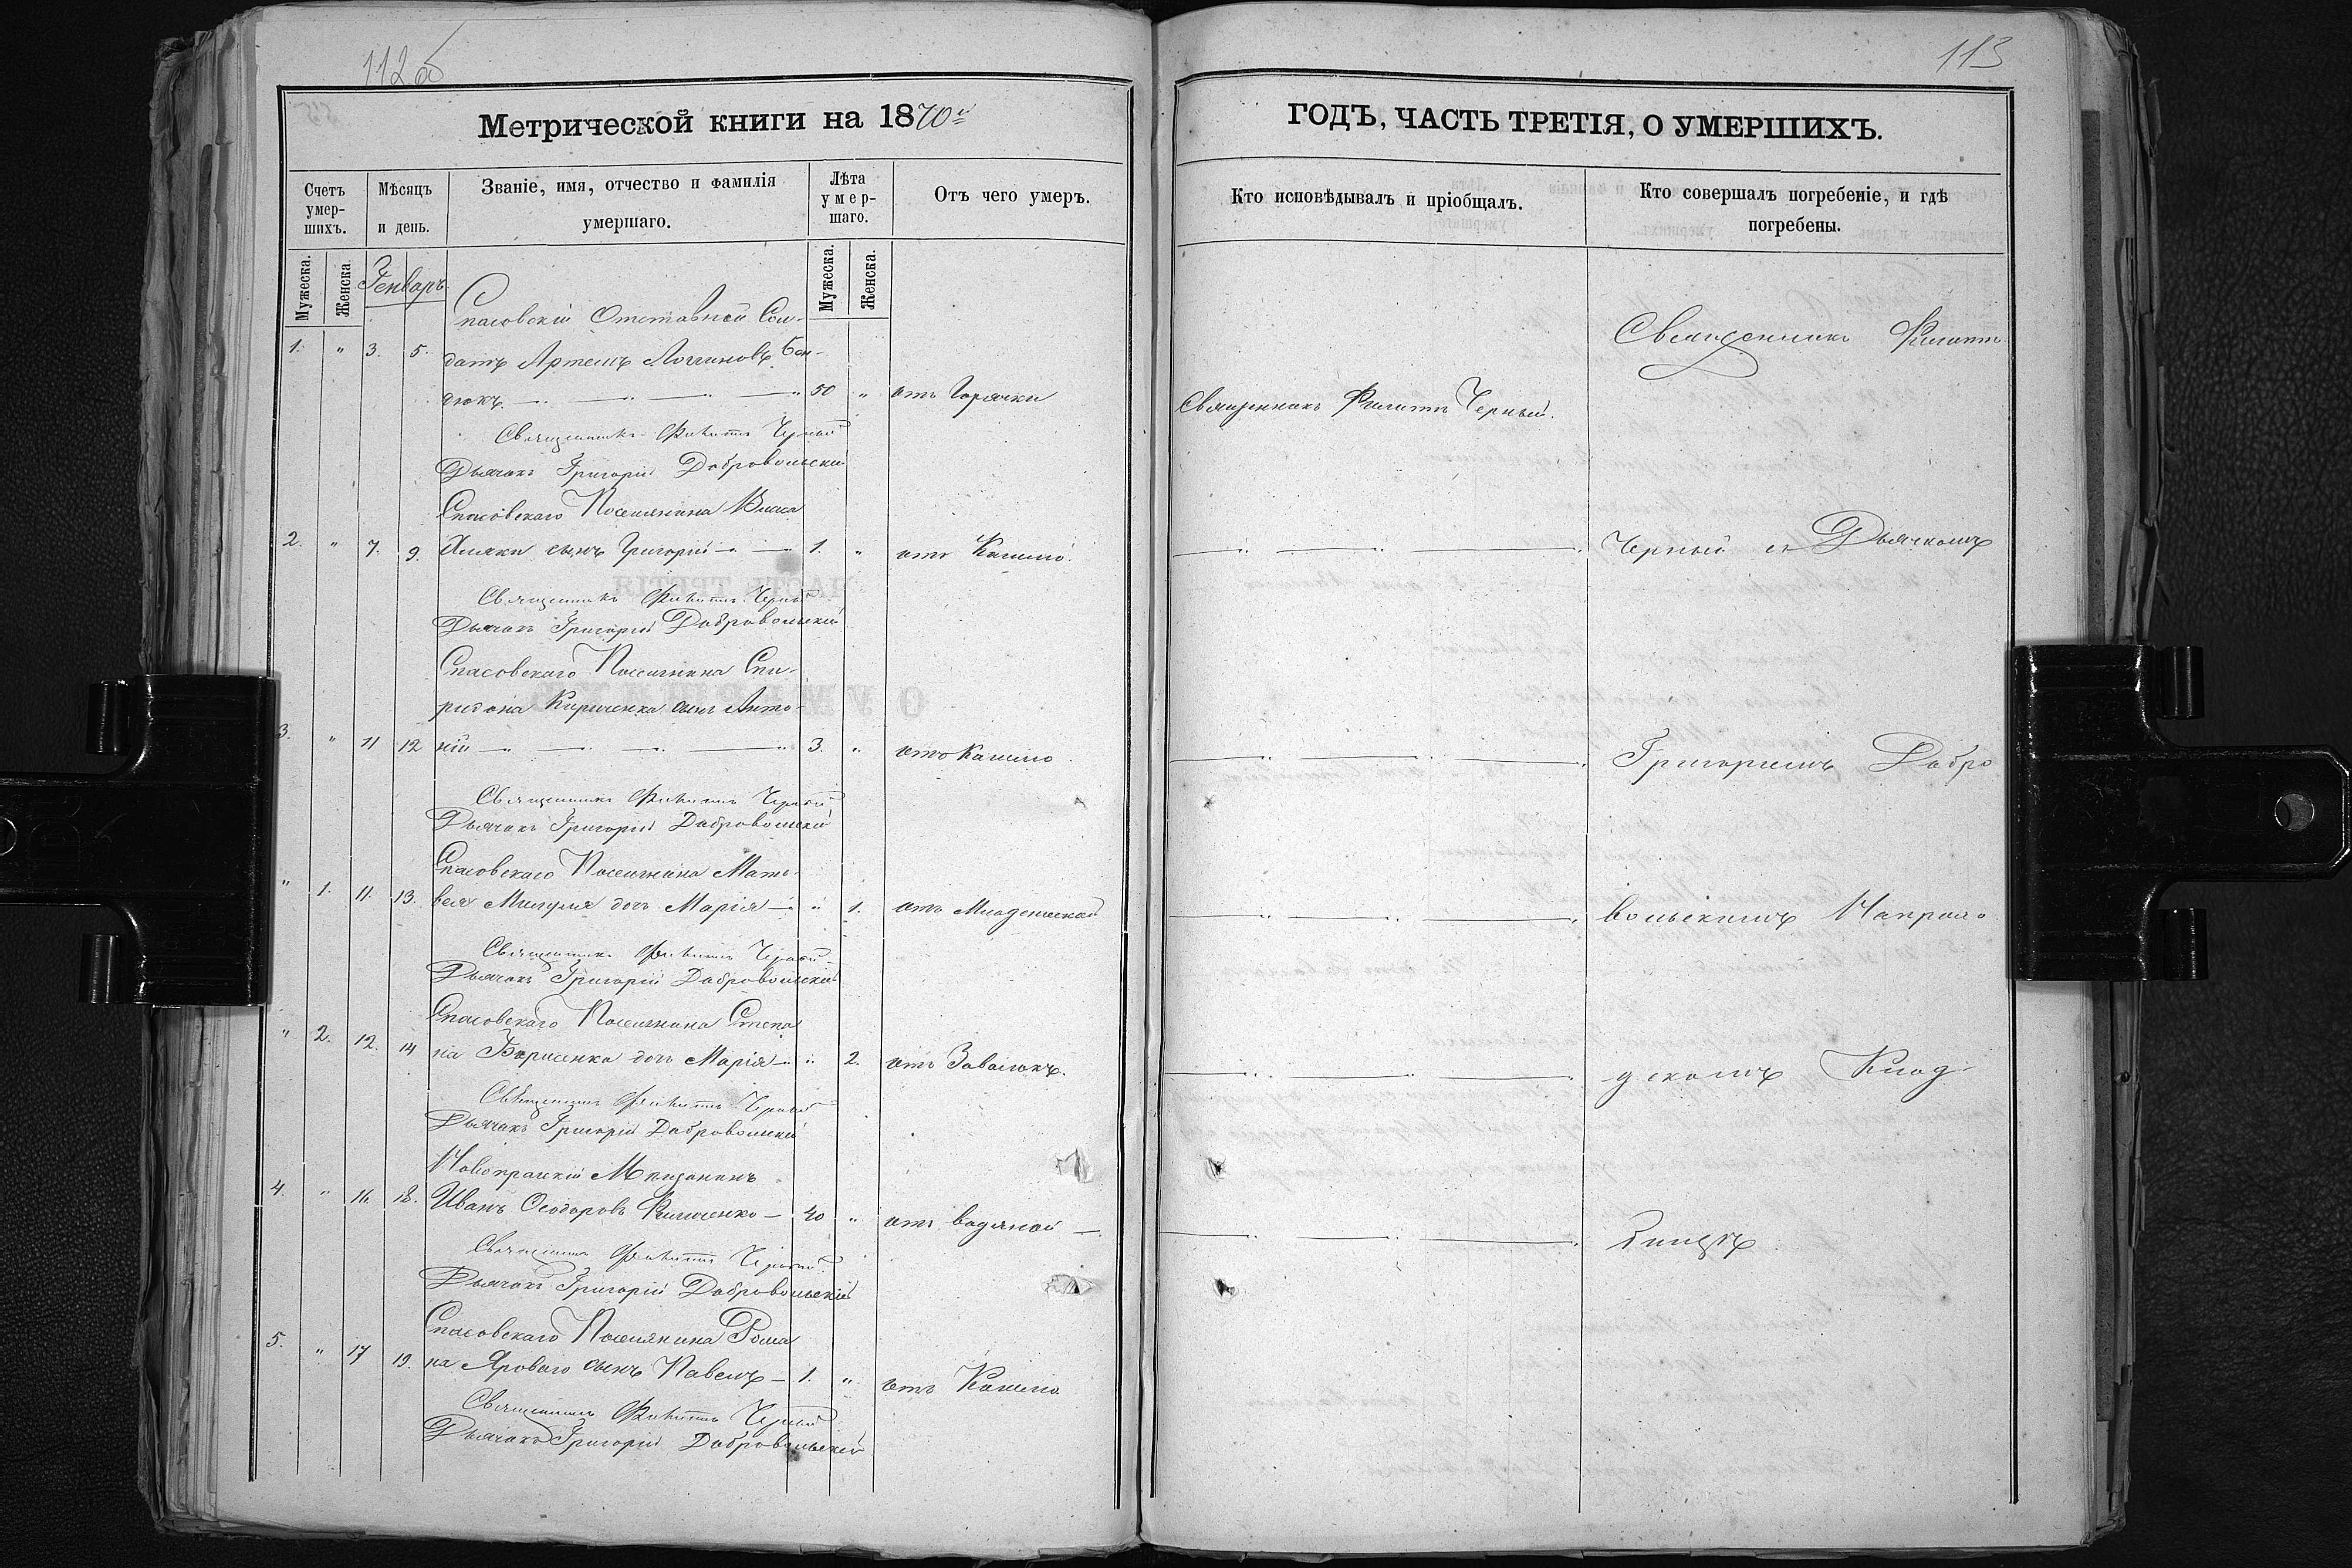 112 об
Метрической книги на 1870й
Счетъ умер-шихъ.
Мѣсяцъ и день.
Званіе, имя, отчество и фамилія умершаго.
Лѣта умер-шаго.
Отъ чего умеръ.
Мужеска.
Женска.
Генварь
Мужеска.
Женска.
Спасовскій Отставной Сол-
1. " 3. 5. датъ Артемъ Логгиновъ Бон-
дюкъ. 50 " отъ Горячки
Священникъ Филиппъ Черный
Дьячокъ Григорій Добровольскій
Спасовскаго Поселянина
2. " 7. 9. сынъ Григорій 1. " отъ Кашлю.
Священникъ Филиппъ Черный
Дьячокъ Григорій Добровольскій
Спасовскаго Поселянина Спи-
ридона Кириченка сынъ Анто-
3. " 11 12 ній 3. " отъ Кашлю.
Священникъ Филиппъ Черный
Дьячокъ Григорій Добровольскій
Спасовскаго Поселянина Мат-
" 1. 11. 13. вея Мигуля дочь Марія " 1. отъ Младенческой
Священникъ Филиппъ Черный
Дьячокъ Григорій Добровольскій
Спасовскаго Поселянина Степа
" 2. 12. 14 на Борисенка дочь Марія " 2. отъ Завалокъ.
Священникъ Филиппъ Черный
Дьячокъ Григорій Добровольскій
Новопражскій Мещанинъ
4. " 16 18. Иванъ Ѳеодоровъ 40 " отъ водяной
Священникъ Филиппъ Черный
Дьячокъ Григорій Добровольскій
Спасовскаго Поселянина Рома
5. " 17 19. на Яроваго сынъ Павелъ 1. " отъ Кашлю
Священникъ Филиппъ Черный
Дьячокъ Григорій Добровольскій
113
ГОДЪ, ЧАСТЬ ТРЕТІЯ, О УМЕРШИХЪ.
Кто исповѣдывалъ и пріобщалъ.
Кто совершалъ погребеніе, и гдѣ погребены.
Священникъ Филиппъ
Священникъ Филиппъ Черный.
Черный съ Дьячкомъ
Григоріемъ Добро
вольскимъ На прихо
дскомъ Клад
бищѣ